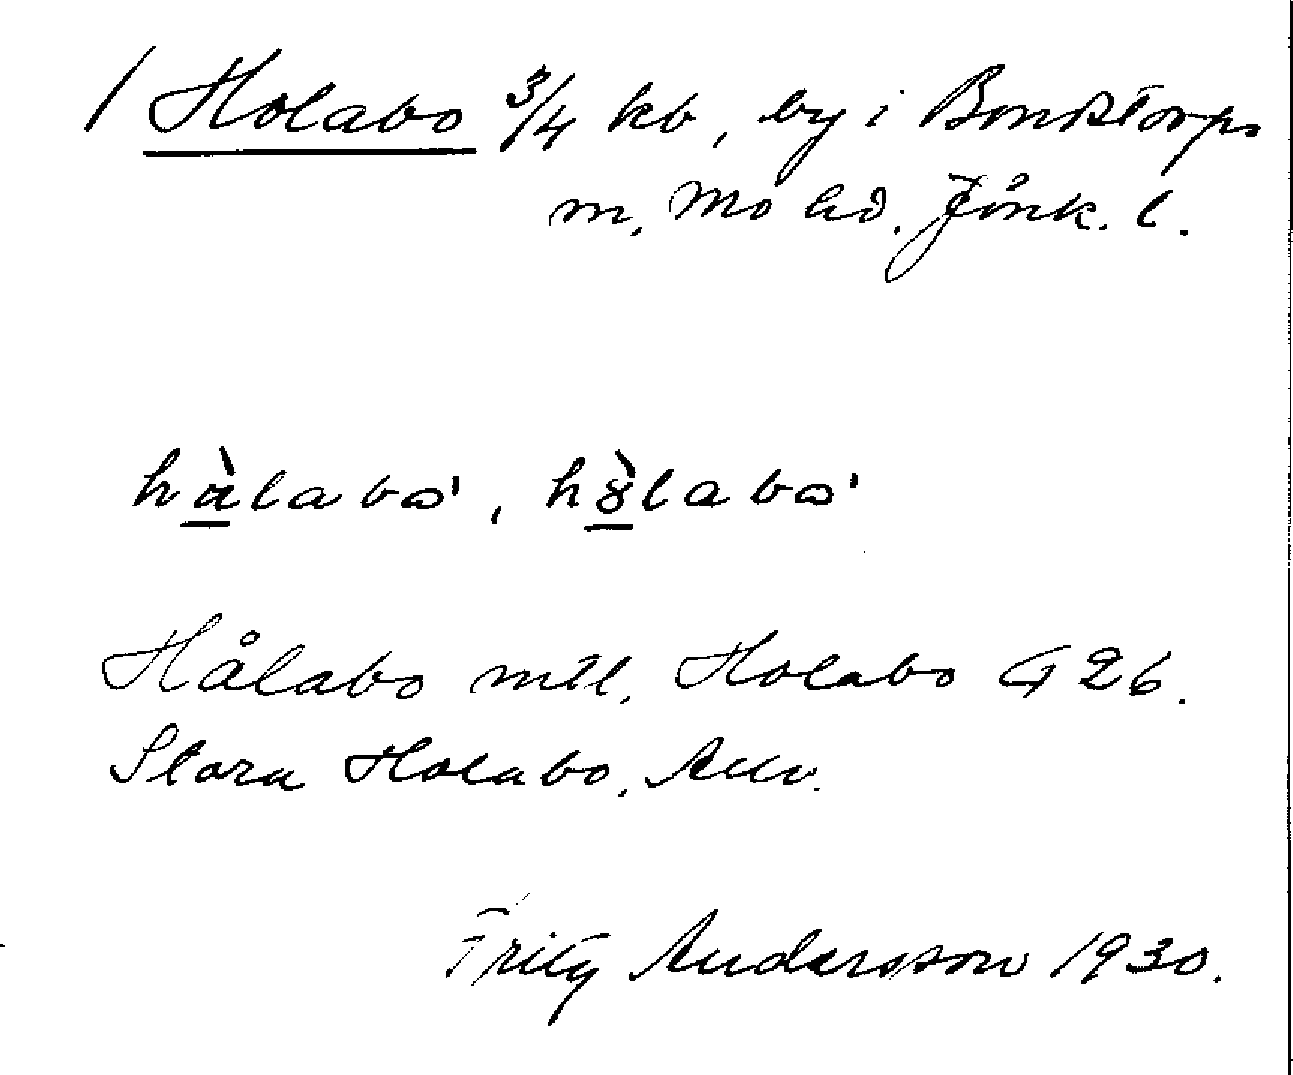 / Holabo 3/4 kb, by i Bonstorps
sn, Mo hd. Jönk. l.
hàlabo', hòlabo'
Hålabo mtl, Holabo G 26.
Stora Holabo,
Fritz Andersson 1930.